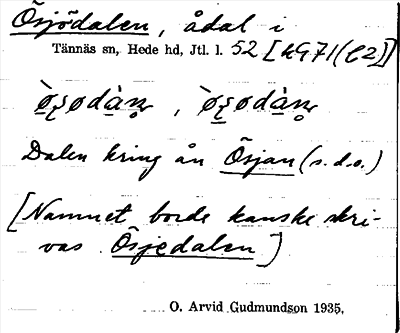 Ösjödalen, ådal i
Tännäs sn, Hede hd, Jtl. l. 52 [hG71(C2)]
Dalen kring ån Ösjan (s.d.o.)
[Namnet borde kanske skri-
vas Ösjedalen]
O. Arvid Gudmundson 1935.